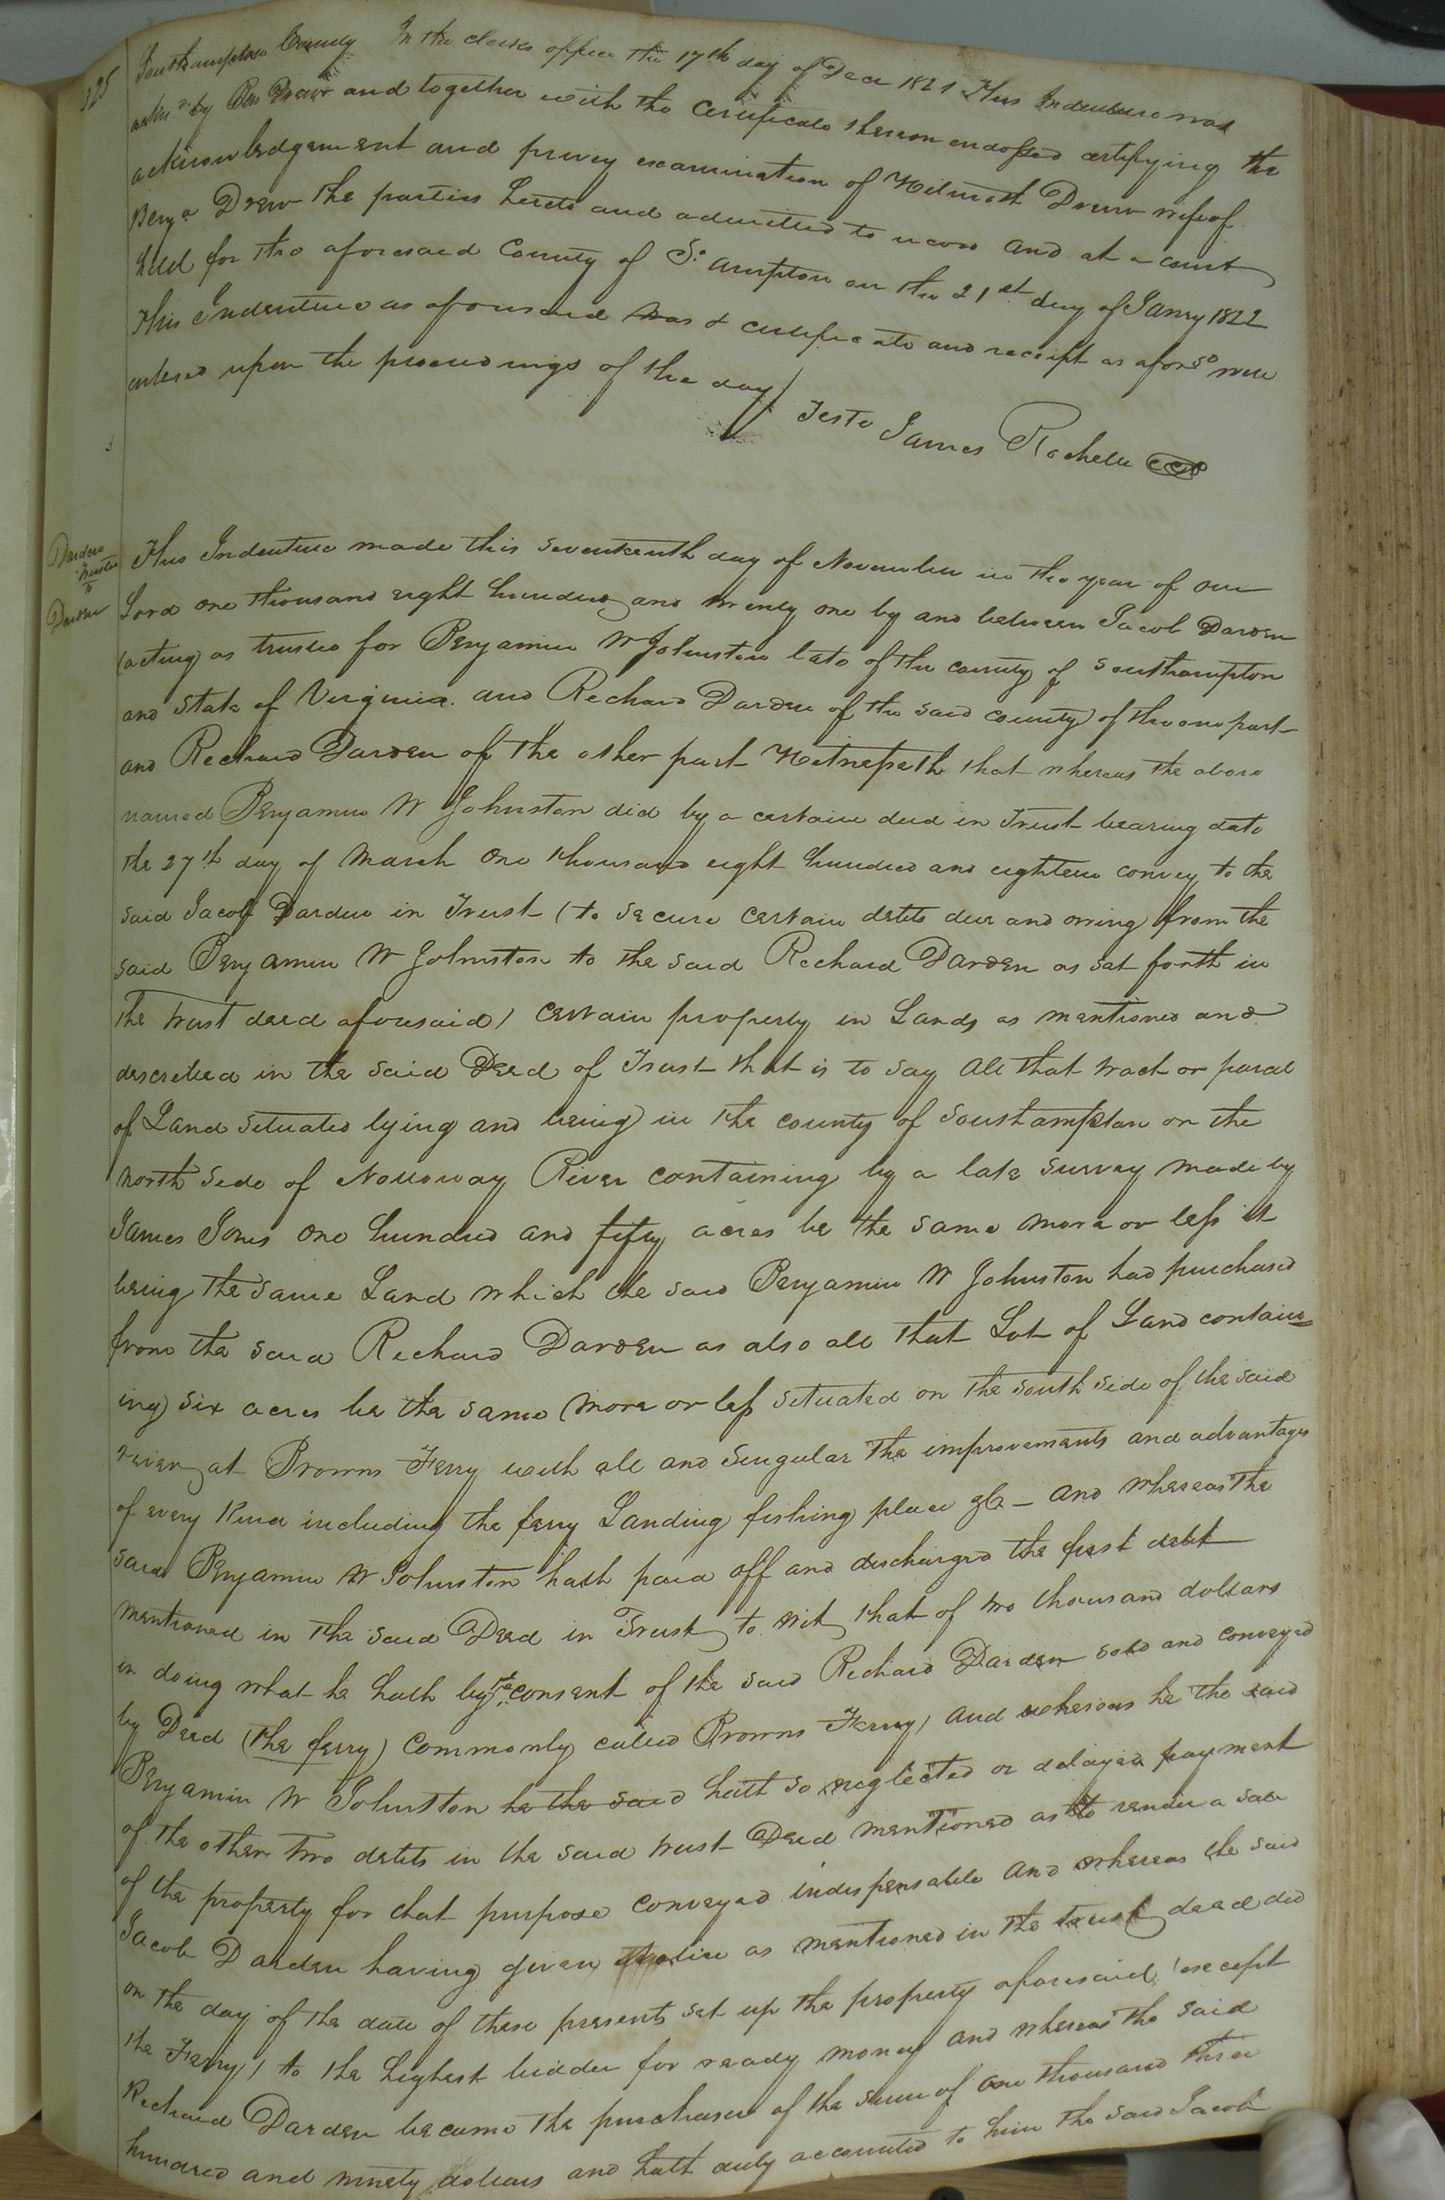 325
Southampton County In the clerks office the 17th day of Decr 1821 This Indenture was
ackd by Ben Drew and together with the certificate thereon endorsed certifying the
acknowledgement and privey examination of Wilmoth Drew wife of
Benja Drew the parties hereto and admitted to record and at a court
held for the aforesaid County of So ampton on the 21st day of Janry 1822
This Indenture as aforesaid was & certificate and receipt as aforsd were
entered upon the proceedings of the day
Teste James Rochelle CC
Darden
Trustee
to
Darden
This Indenture made this seventeenth day of November in the year of our
Lord one thousand eight hundred and twenty one by and between Jacob Darden
(acting) as trustee for Benjamin W Johnston late of the county of Southampton
and State of Virginia and Richard Darden of the said county) of the one part
and Richard Darden of the other part Witnesseth that whereas the above
named Benjamin W Johnston did by a certain deed in Trust bearing date
the 27th day of March One thousand eight hundred and eighteen convey to the
said Jacob Darden in Trust (to secure certain debts due and owing from the
said Benjamin W Johnston to the said Richard Darden as set forth in
the trust deed aforesaid) certain property in Lands as mentioned and
described in the said Deed of Trust that is to say all that tract or parcel
of Land situated lying and being in the county of Southampton on the
north side of Nottoway River containing by a late survey made by
James Jones one hundred and fifty acres be the same more or less it
being the same Land which the said Benjamin W Johnston had purchased
from the said Richard Darden as also all that Lot of Land contain=
ing six acres be the same more or less situated on the south side of the said
river at Browns Ferry with all and singular the improvements and advantages
of every kind including the ferry Landing fishing place &c – and whereas the
said Benjamin W Johnston hath paid off and discharged the first debt
mentioned in the said Deed in Trust to wit that of two thousand dollars
in doing what he hath by the consent of the said Richard Darden sold and conveyed
by Deed (the ferry) commonly called Browns Ferry) and whereas he the said
Benjamin W Johnston he the said hath so neglected or delayed payment
of the other two debts in the said trust Deed mentioned as to render a sale
of the property for that purpose conveyed indispensable and whereas the said
Jacob Darden having given notice as mentioned in the trust deed did
on the day of the date of these presents set up the property aforesaid (except
the Ferry) to the highest bidder for ready money and whereas the said
Richard Darden became the purchaser of the sum of one thousand three
hundred and ninety dollars and hath duly accounted to him the said Jacob